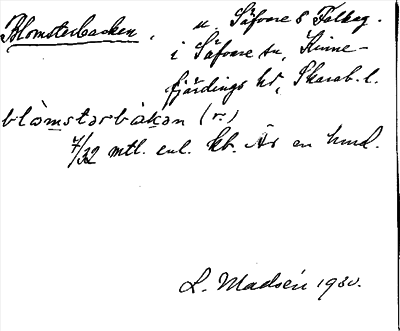 Blomsterbacken, u. Säfvare 8 Falbag.
i Säfvare sn, Kinne-
fjärdings hd, Skarab. l.
blòmstərbàkən (r.)
7/32 mtl. enl. kb. Är en lund.
L. Madsén 1930.